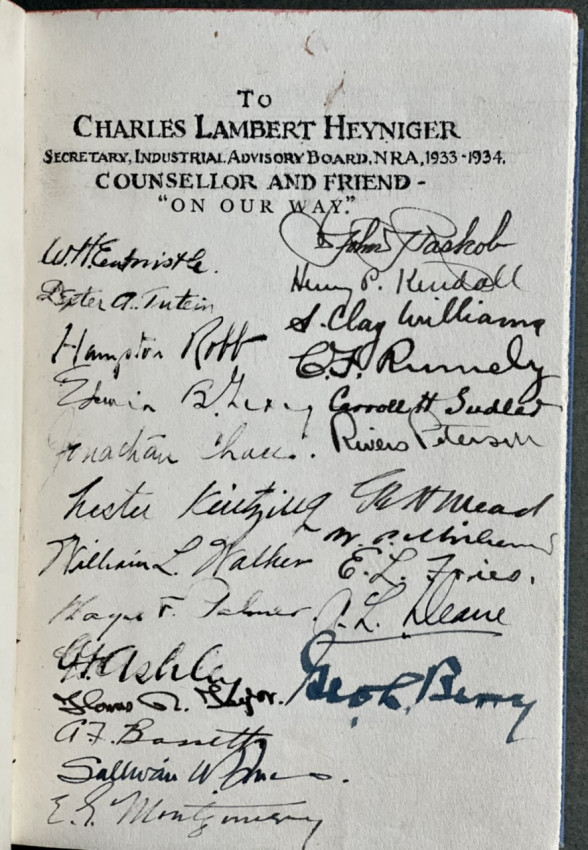 TO
CHARLES LAMBERT HEYNIGER
SECRETARY, INDUSTRIAL ADVISORY BOARD, NRA, 1933-1934.
COUNSELLOR AND FRIEND -
"ON OUR WAY."
W.H. Entwistle.
Dexter A. Tutein
Hampton Robb
Edwin B.
Jonathan
Lester Kintzing
William L. Walker
F. Palmer.
A.F. Bassett
Sullivan W. Jones.
E.G. Montgomery
John J Raskob
Henry P. Kendall
S. Clay Williams
C.F. Rumely
Carroll H Sudler
Rivers Peterson
Geo H Mead
E.L. Fries.
A.L. Deane
Geo L. Berry